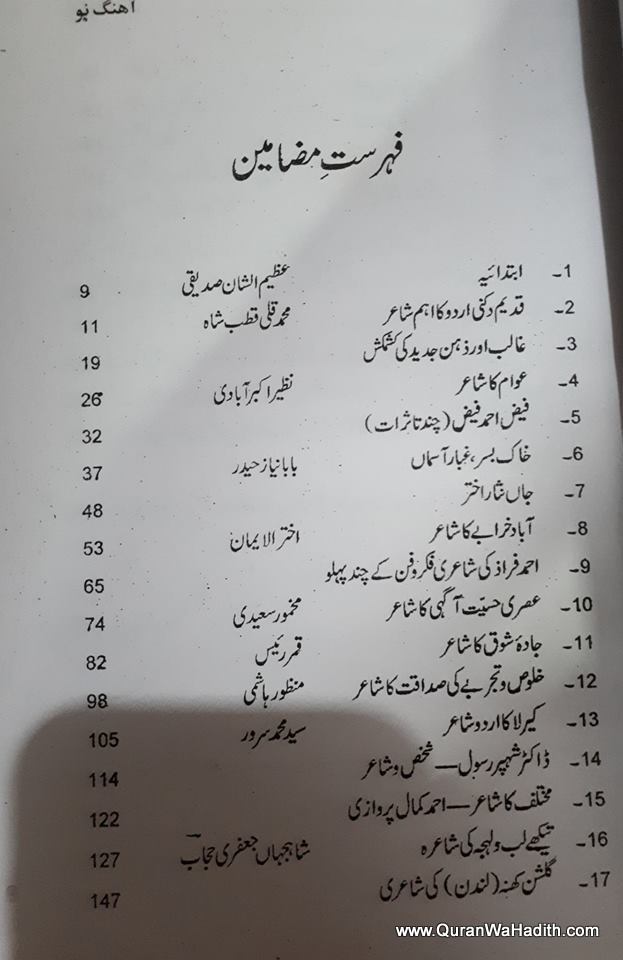 آهنگ نو
فہرستِ مضامین
1۔ ابتدائیہ عظیم الشان صدیقی 9
2۔ قدیم دکنی اردو کا اہم شاعر محمد قلی قطب شاہ 11
3۔ غالب اور ذہن جدید کی کشمکش 19
4۔ عوام کا شاعر نظیر اکبر آبادی 26
5۔ فیض احمد فیض (چند تاثرات) 32
6۔ خاک بسر، غبار آسماں بابا نیاز حیدر 37
7۔ جاں نثار اختر 48
8۔ آباد خرابے کا شاعر اختر الایمان 53
9۔ احمد فراز کی شاعری فکر و فن کے چند پہلو 65
10۔ عصری حسیّت آگہی کا شاعر مخمور سعیدی 74
11۔ جادۂ شوق کا شاعر قمر رئیس 82
12۔ خلوص و تجربے کی صداقت کا شاعر منظور ہاشمی 98
13۔ کیرلا کا اردو شاعر سید محمد سرور 105
14۔ ڈاکٹر شہپر رسول — شخص و شاعر 114
15۔ مختلف کا شاعر — احمد کمال پروازی 122
16۔ تیکھے لب و لہجہ کی شاعرہ شاہجہاں جعفری حجاب 127
17۔ گلشن کھنہ (لندن) کی شاعری 147
www.QuranWaHadith.com